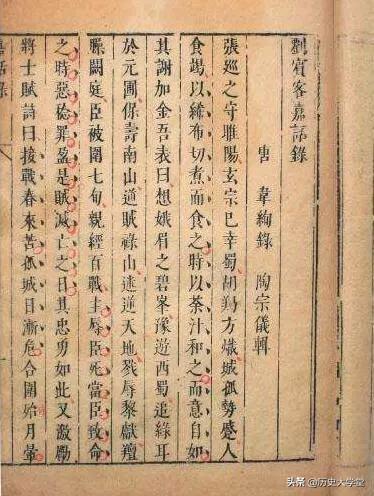 劉賓客嘉話錄
唐　韋絢錄　陶宗儀輯
張巡之守睢陽玄宗已幸蜀胡勢方熾城孤勢蹙人
食竭以絺布切煑而食之時以茶汁和之而意自如
其謝加金吾表曰想娥眉之碧峯豫遊西蜀追綠耳
於元圃保壽南山逆賊祿山逺逆天地戮辱黎獻羶
臊闕庭臣被圍七旬親經百戰主辱臣死當臣致命
之時惡稔罪盈是賊滅亡之日其忠勇如此又激勵
將士賦詩曰接戰春來苦孤城日漸危合圍始月暈
嘉話錄
頭條 @历史大学堂